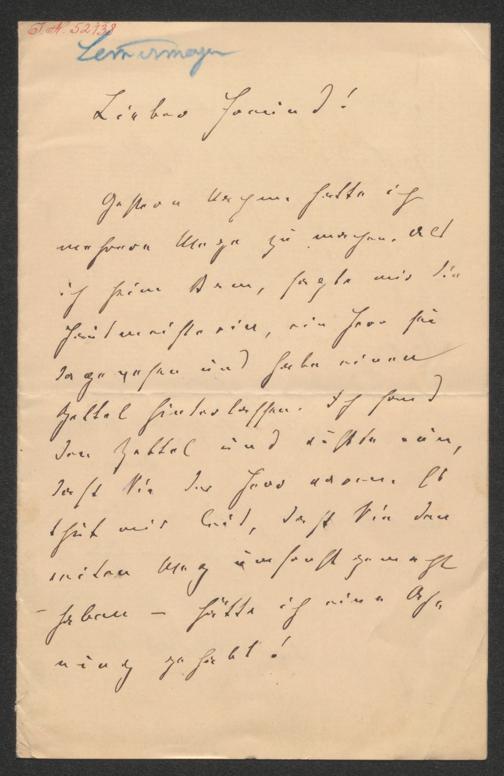 I.N. 52938
Lemmermayer
Lieber Freund!
Gestern Nachm. hatte ich
mehrere Wege zu machen. Als
ich heim kam, sagte mir die
Hausmeisterin, ein Herr sei
dagewesen und habe einen
Zettel hinterlassen. Ich fand
den Zettel und wußte nun,
daß Sie der Herr waren. Es
thut mir leid, daß Sie den
weiten Weg umsonst gemacht
haben – hätte ich eine Ah-
nung gehabt!